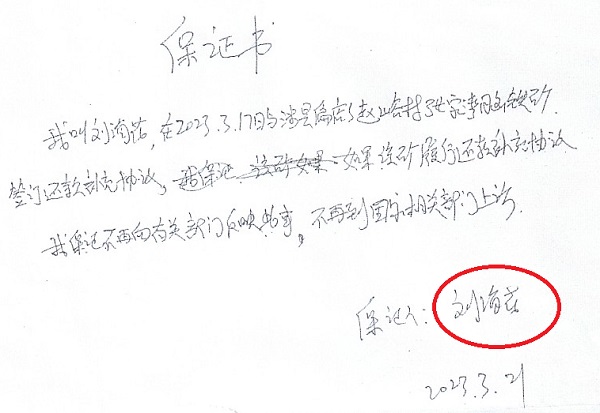 保证书
我叫刘海岩,在2023.3.17日与涉县偏店乡赵峪村 铁矿
签订还款补充协议,我保证 该矿如果 如果该矿履行还款补充协议
我保证不再向有关部门反映此事,不再到国家相关部门上访.
保证人:刘海岩
2023.3.21